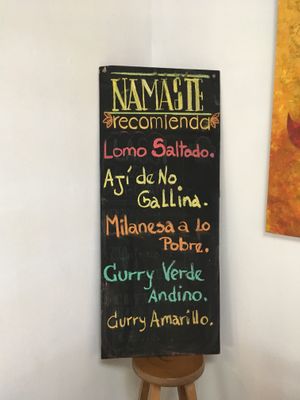 NAMASTE
recomienda
Lomo Saltado.
Ají de No
Gallina.
Milanesa a lo
Pobre.
Curry Verde
Andino.
Curry Amarillo.